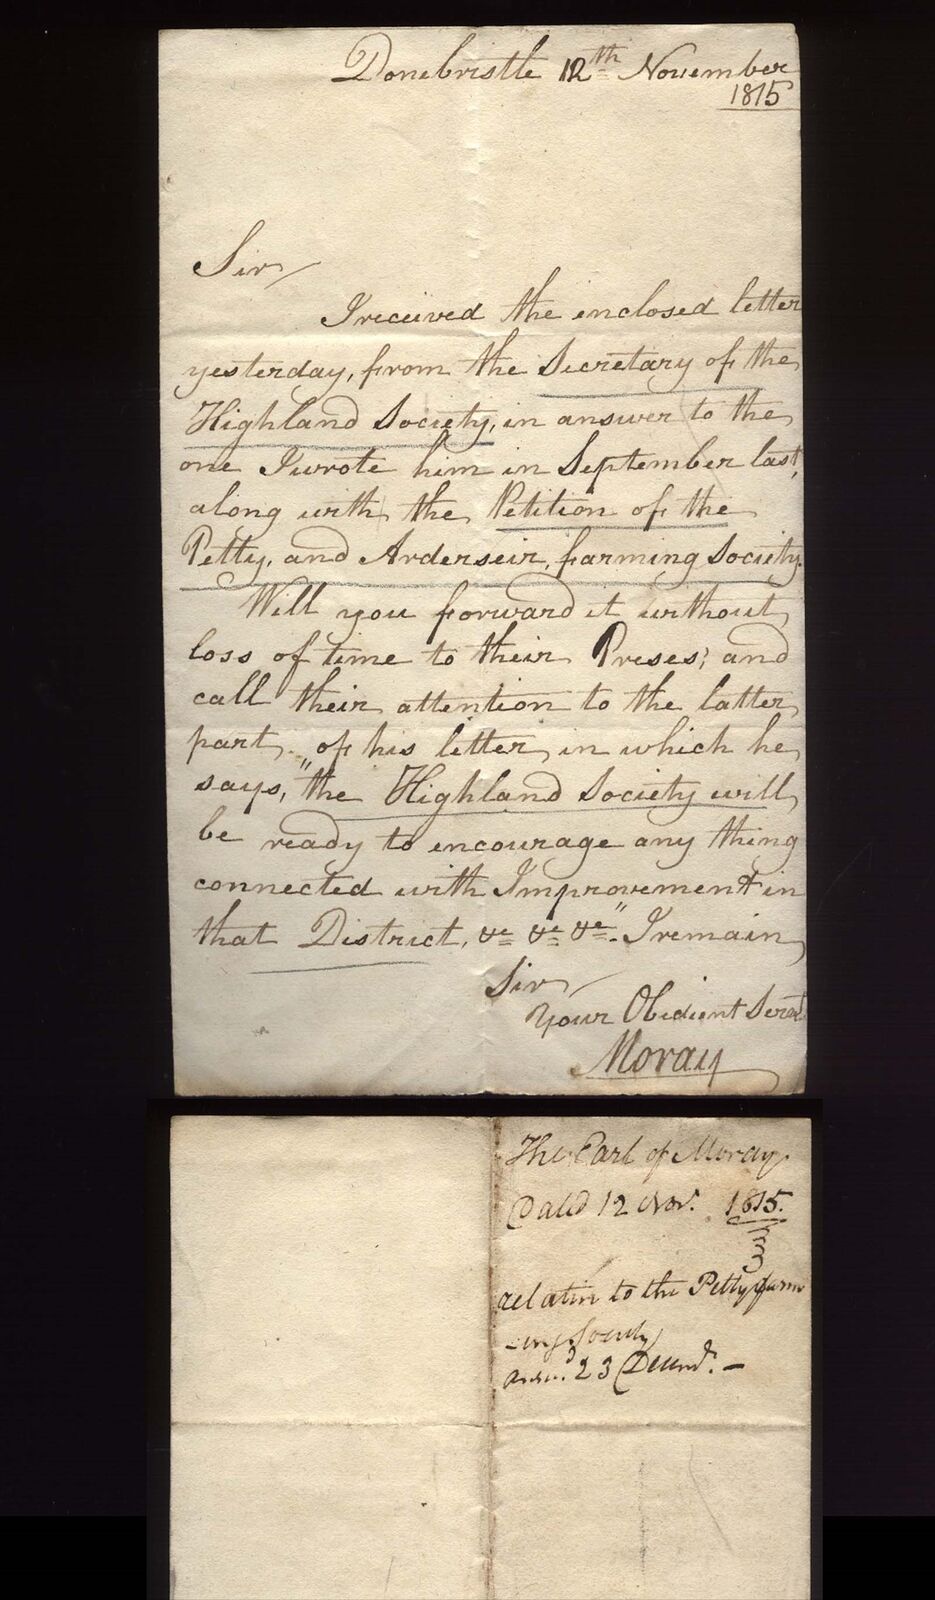 Donebristle 12th November
1815
Sir
I received the inclosed letter
yesterday, from the Secretary of the
Highland Society, in answer to the
one I wrote him in September last,
along with the Petition of the
Petty, and Arderseir, farming Society.
Will you forward it without
loss of time to their Preses; and
call their attention to the latter
part of his letter, in which he
says, "the Highland Society will
be ready to encourage any thing
connected with Improvement in
that District, &c &c &c". I remain
Sir
Your Obedient Servt
Moray
The Earl of Moray
Dated 12 Nov. 1815.
relative to the Petty farm
-ing Society
23 Decemr. -